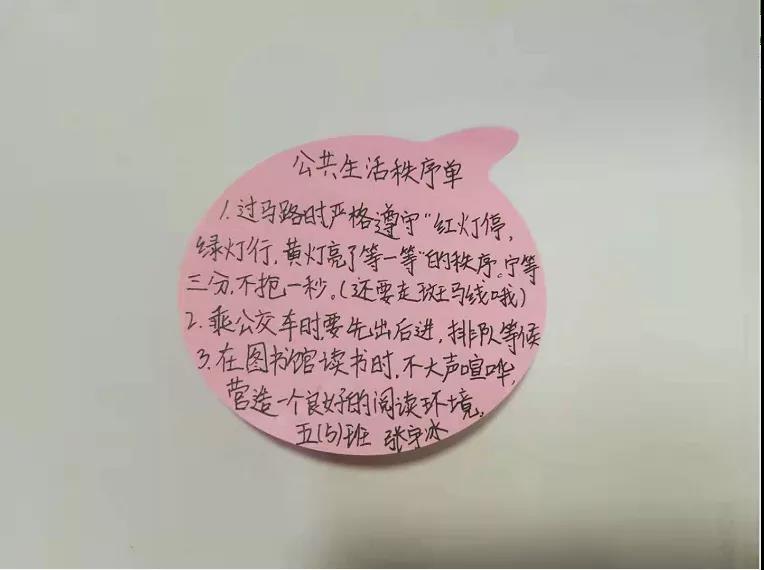 公共生活秩序单
1.过马路时严格遵守“红灯停,
绿灯行,黄灯亮了等一等”的秩序。宁等
三分,不抱一秒。(还要走斑马线哦)
2.乘公交车时要先出后进,排队等候
3.在图书馆读书时,不大声喧哗,
营造一个良好的阅读环境。
五(5)班 张宇冰